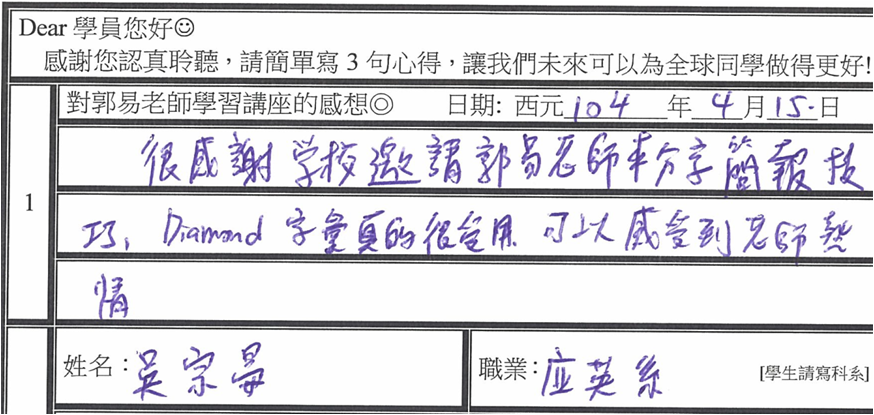 Dear 學員您好☺
感謝您認真聆聽，請簡單寫 3 句心得，讓我們未來可以為全球同學做得更好!
對郭易老師學習講座的感想◎ 日期: 西元 104 年 4 月 15. 日
1
很感謝学校邀請郭易老師來分享簡報技
巧, Diamond 字彙真的很受用 可以感受到老師熱
情
姓名：吳宗 職業：应英系 [學生請寫科系]